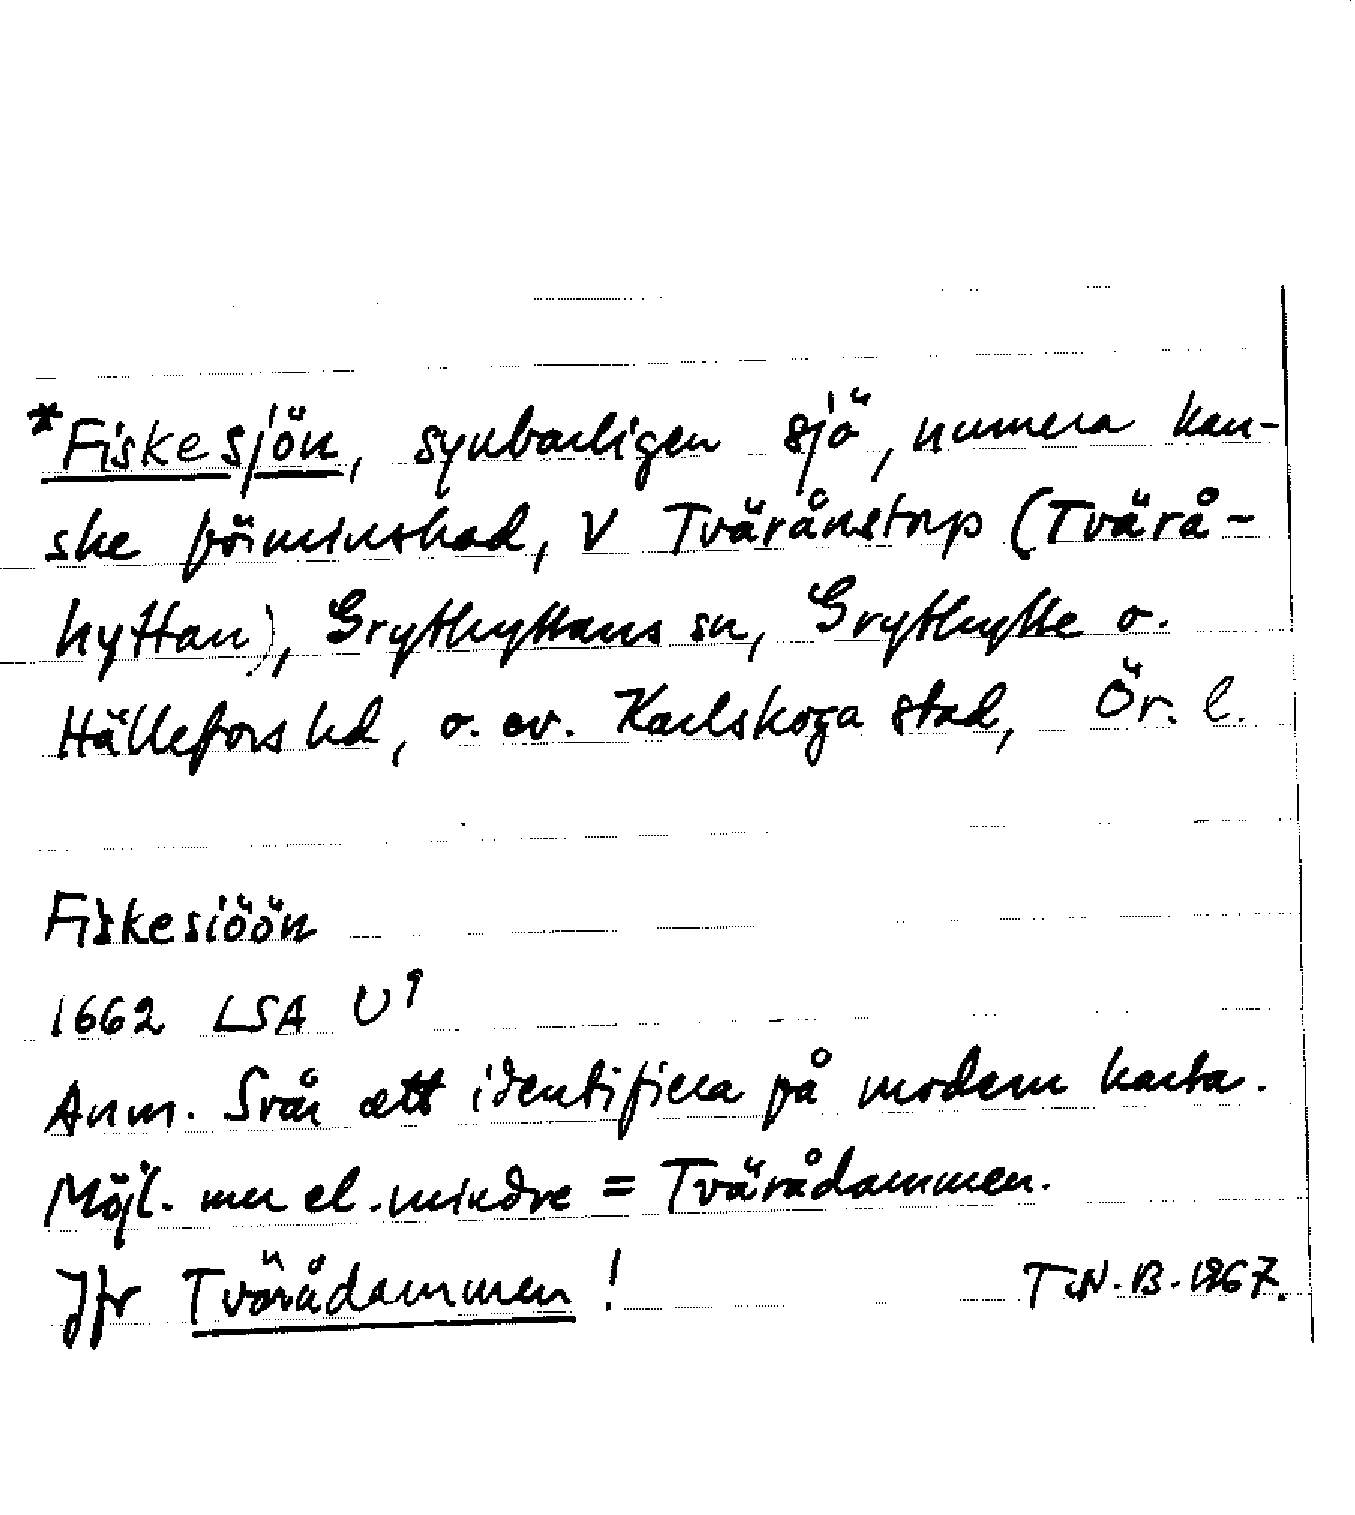 *Fiskesjön, synbarligen sjö, numera kan-
ske förminskad, V Tvärånstorp (Tvärå-
hyttan), Grythyttans sn, Grythytte o.
Hällefors hd, o. ev. Karlskoga stad, Ör. l.
Fiskesiöön
1662 LSA U 9
Anm. Svår att identifiera på modern karta.
Möjl. mer el. mindre = Tvärådammen.
Jfr Tvärådammen!
T.N.B. 1967.